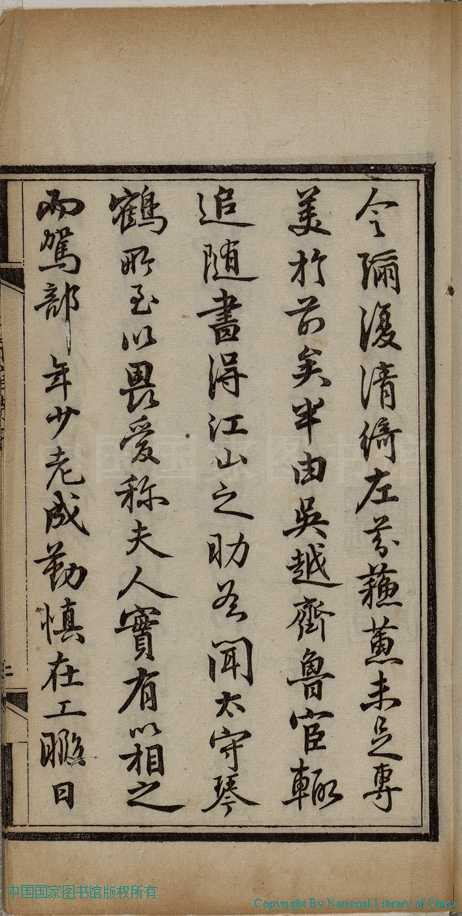 今彌復清綺左芬蘇蕙未足專
美於前矣半由吳越齊魯宦轍
追随書得江山之助吾聞太守琴
鶴所至以畏愛称夫人實有以相之
而駕部年少老成勤慎在工曒日
中国国家图书馆版权所有
Copyright By National Library of China